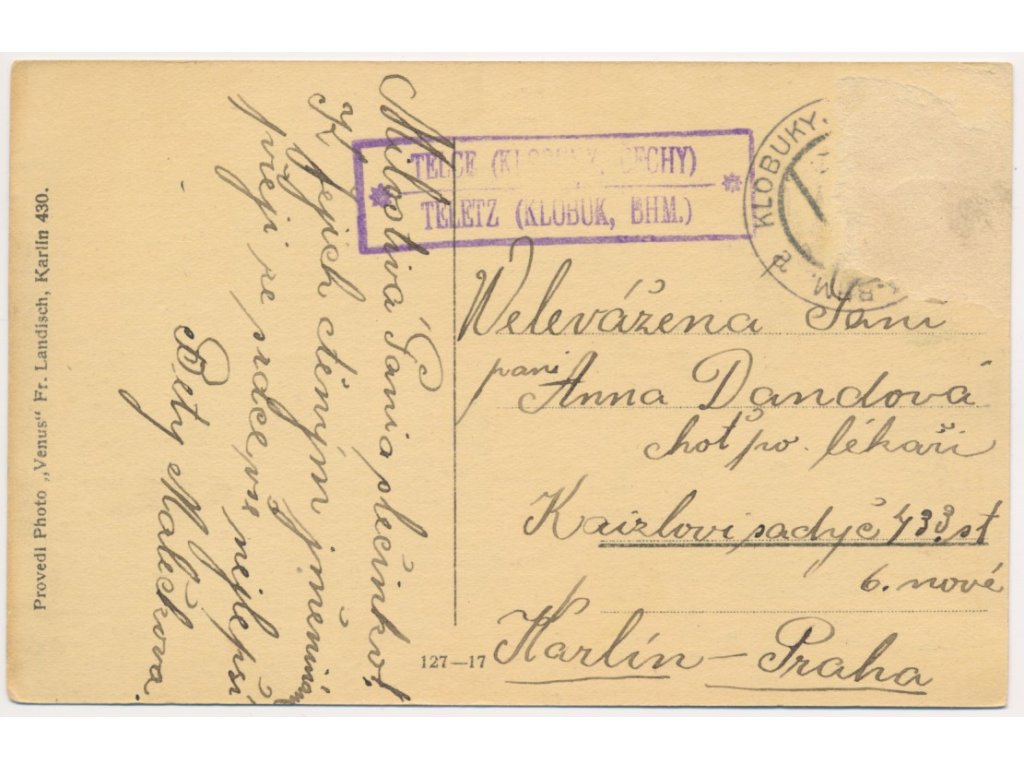 Provedl Photo „Venus" Fr. Landisch, Karlín 430.
Milostivá Paní a slečinko!
K Jejich ctěným jmeninám
přeji ze srdce vše nejlepší
Bety Malečkova.
TELCE (KLOBUKY, ČECHY)
TELETZ (KLOBUK, BHM.)
KLOBUKY,
BHM.
Velevážena Paní
paní
Anna Dandová
choť po lékaři
Kaizlovi sady č 433. st
6. nové
Karlín – Praha
127—17